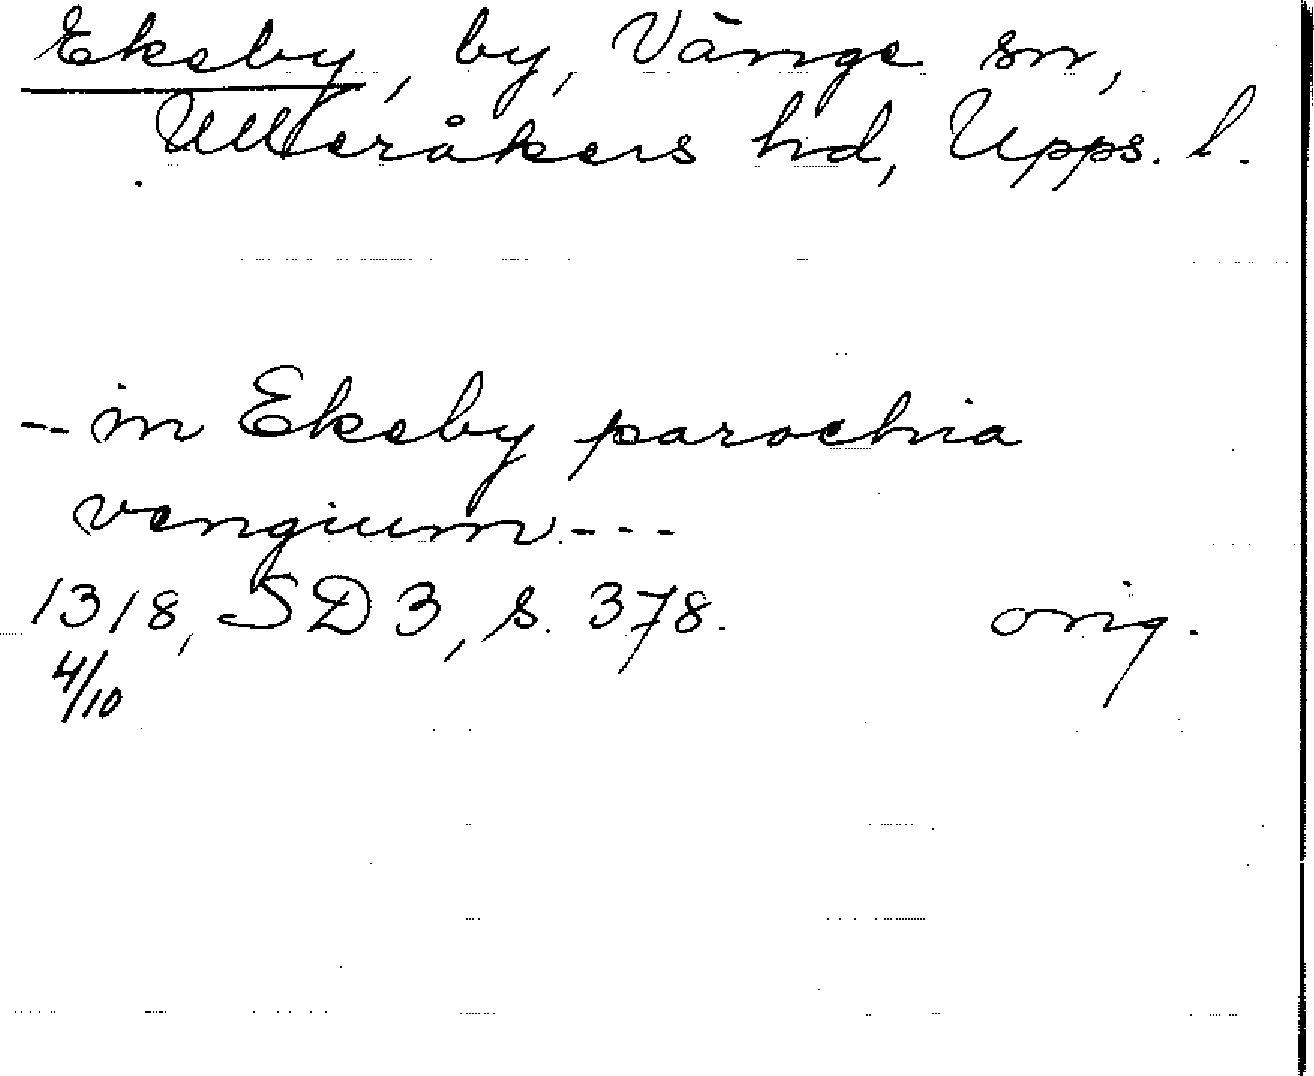 Ekeby, by, Vänge sn,
Ulleråkers hd, Upps. l.
-- in Ekeby parochia
vengium ---
1318, SD 3, s. 378. orig.
4/10